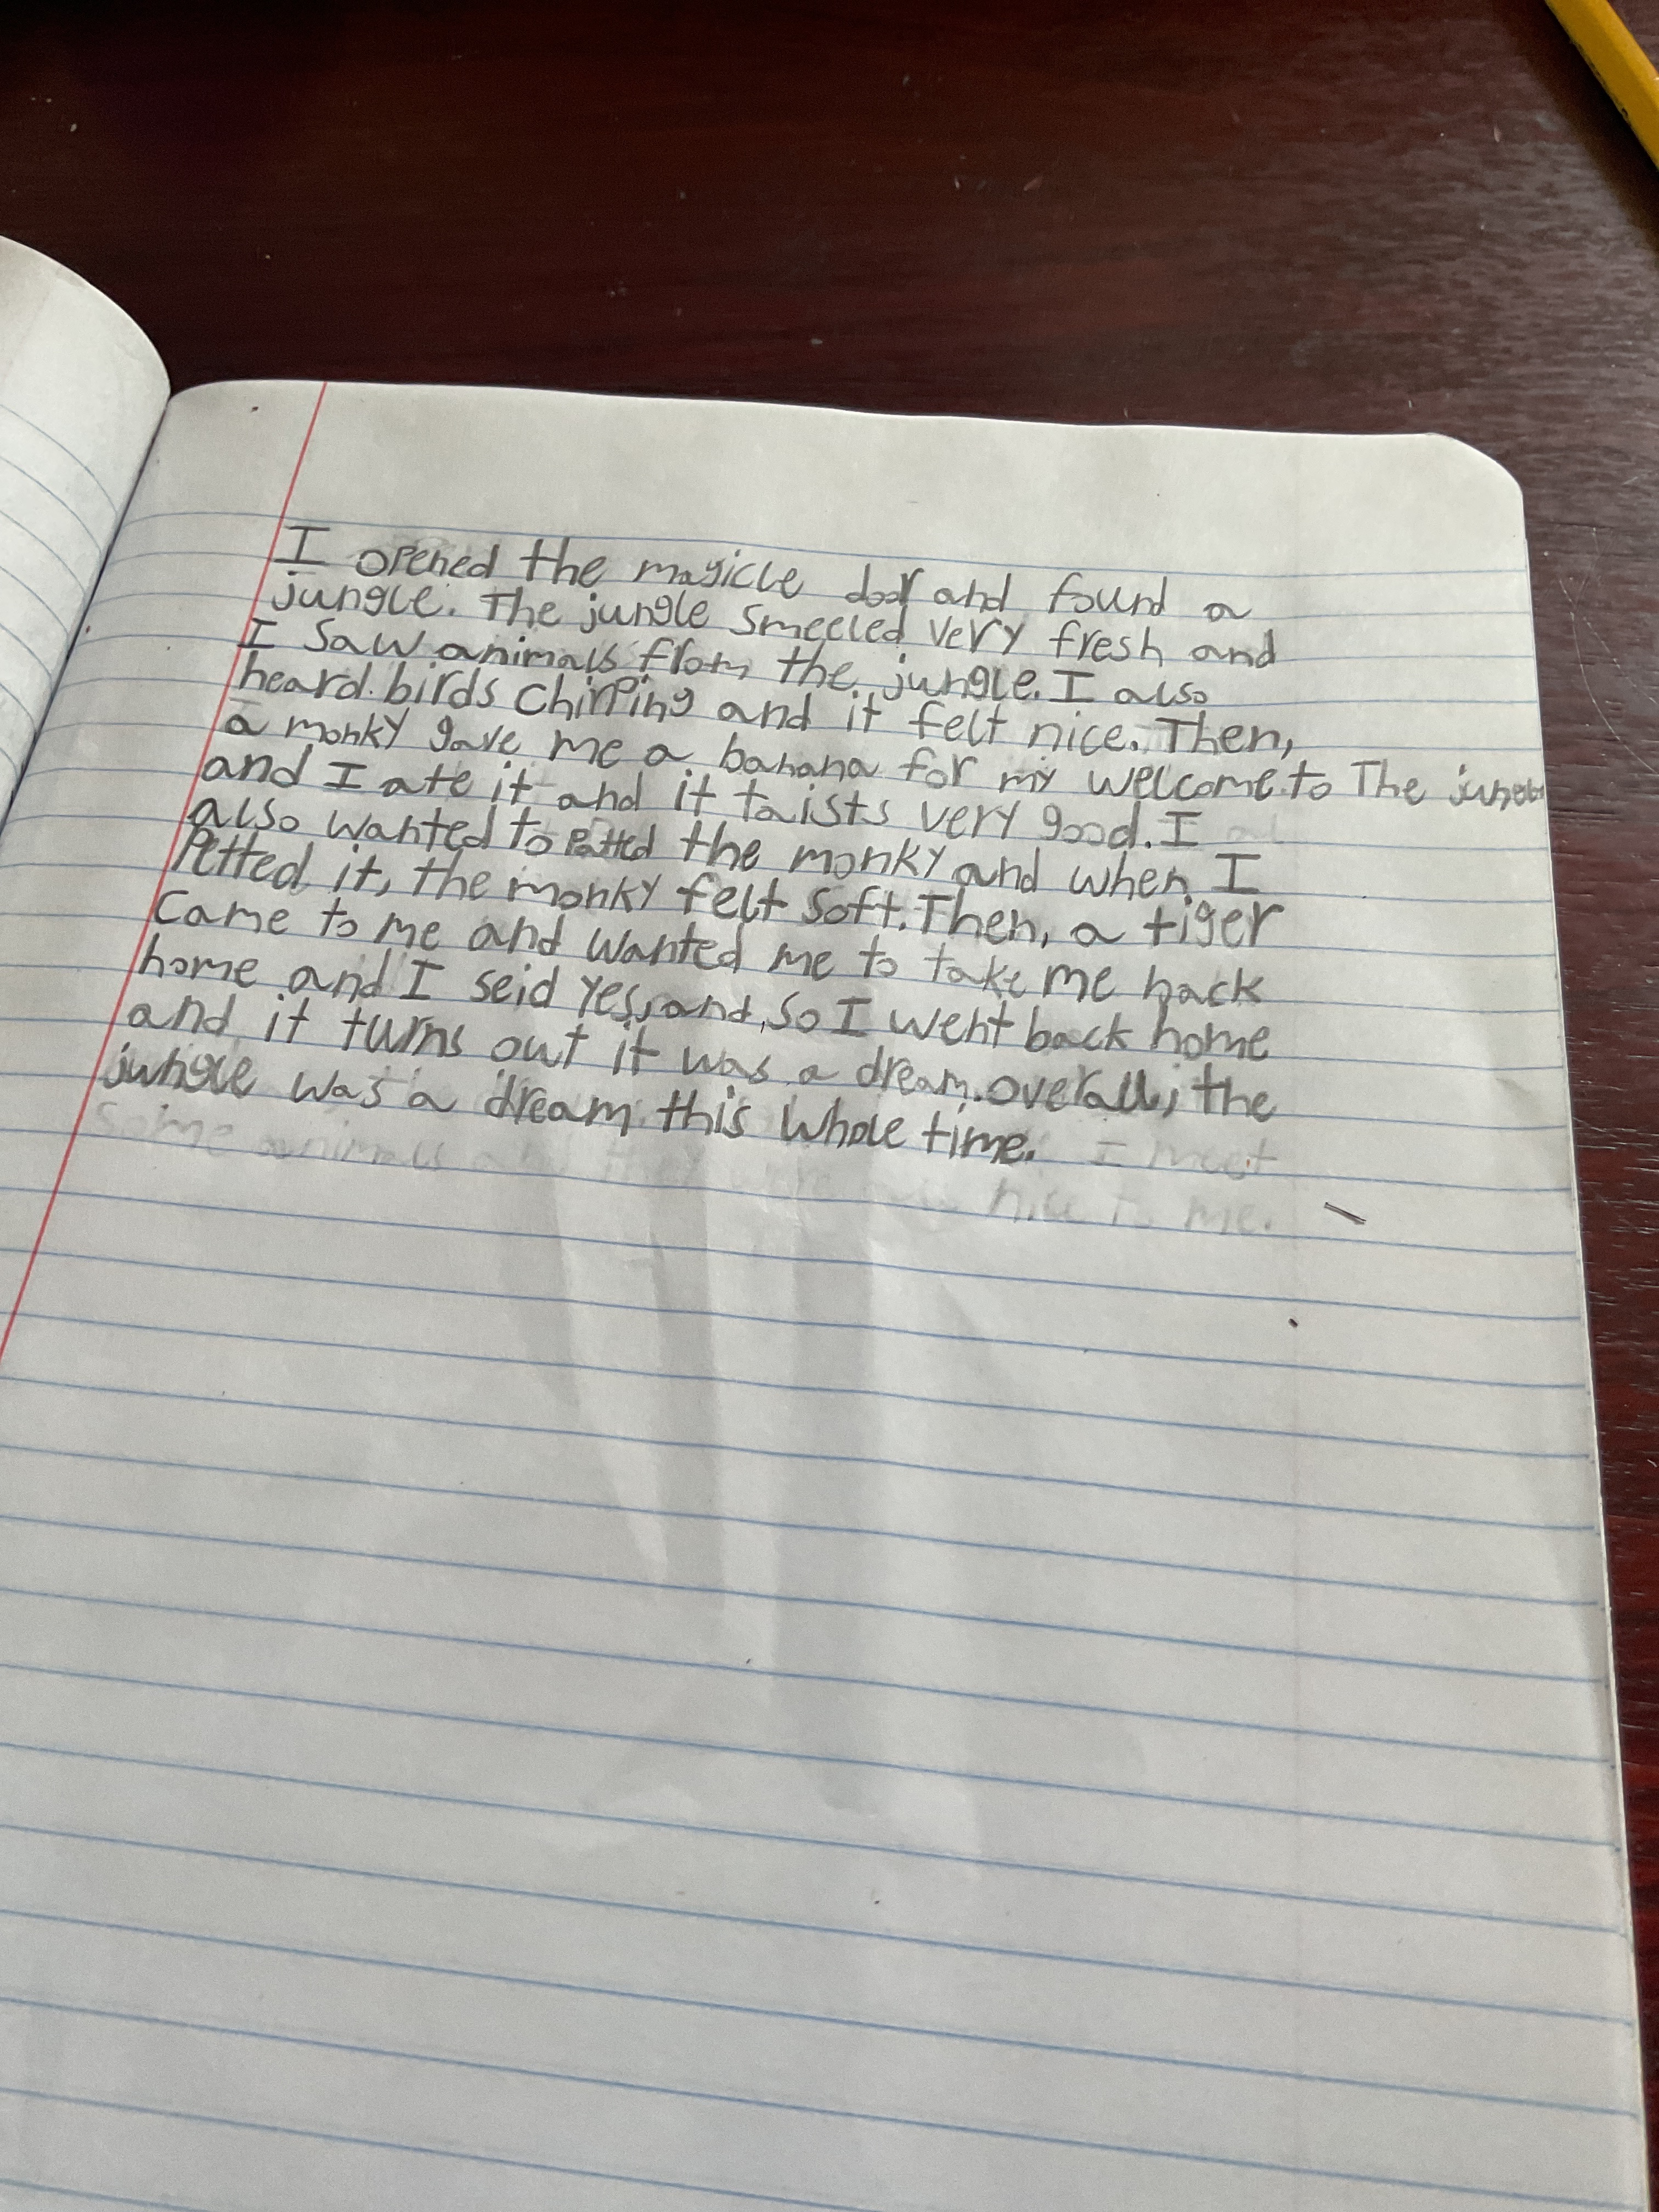 I opened the magicle door and found a
jungle. The jungle smeeled very fresh and
I saw animals from the jungle. I also
heard birds chirping and it felt nice. Then,
a monky gave me a banana for my welcome to The jungle
and I ate it and it taists very good. I
also wanted to Patted the monky and when I
Petted it, the monky felt soft. Then, a tiger
came to me and wanted me to take me back
home and I seid yes, and, so I went back home
and it turns out it was a dream. overall, the
jungle was a dream this whole time.
some animals and they were nice to me. I meet